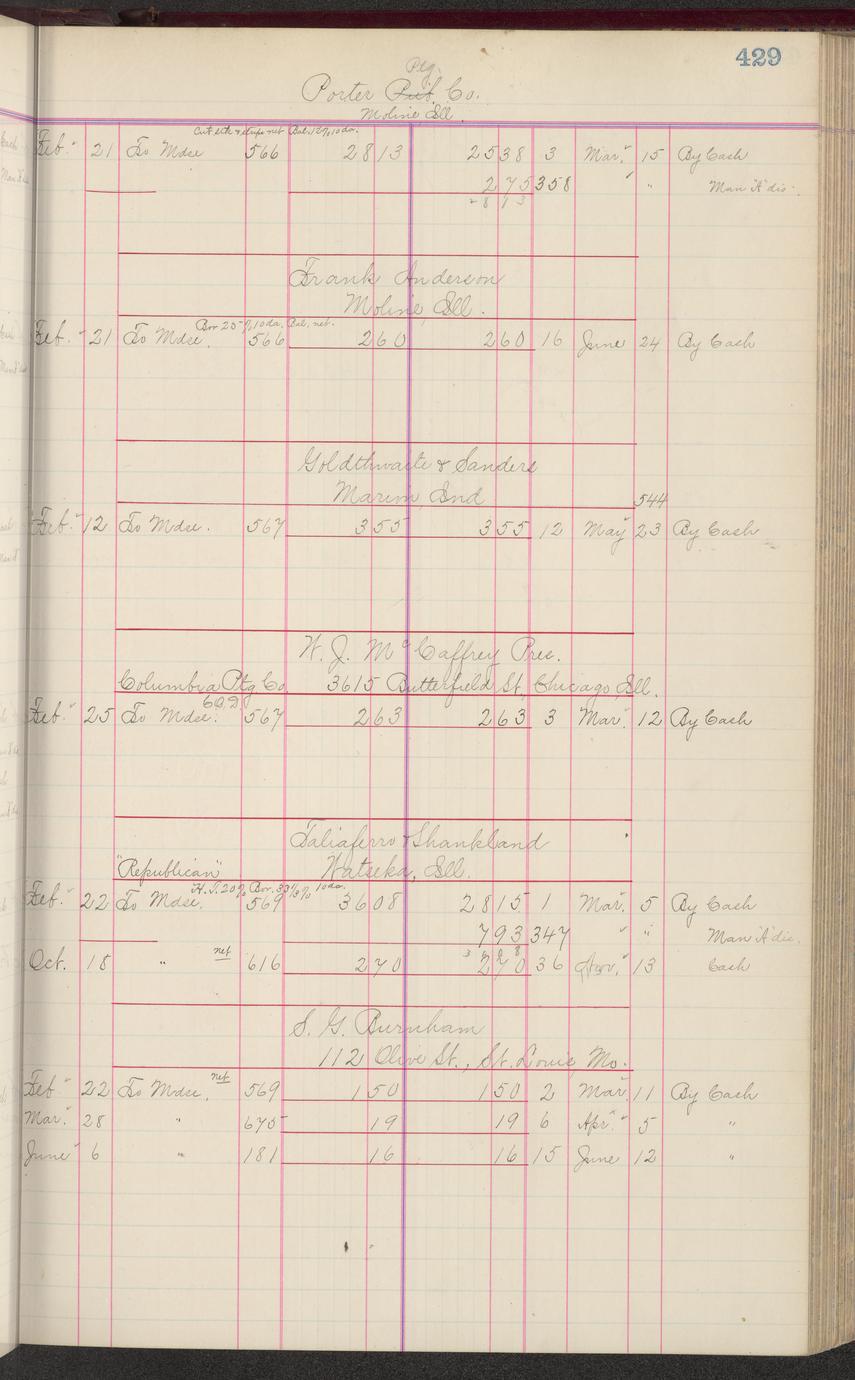 429
Ptg.
Porter Pub. Co.
Moline, Ill.
Bal. 12% 10 da.
Feb. 21 To Mdse 566 2813 2538 3 Mar. 15 By Cash
275 358 " " Man "A" dis.
2813
Frank Anderson
Moline, Ill.
Bor 25% 10 da. Bal. net.
Feb. 21 To Mdse. 566 260 260 16 June 24 By Cash
Goldthwaite & Sanders
Marion, Ind
544
Feb. 12 To Mdse. 567 355 355 12 May 23 By Cash
W. J. McCaffrey Pres.
Columbia Ptg Co 3615 Butterfield St, Chicago, Ill.
C.O.D.
Feb. 25 To Mdse. 567 263 263 3 Mar. 12 By Cash
Taliaferro & Shankland
"Republican" Watseka, Ill.
H.T. 20% Bor. 33 1/3% 10 da.
Feb. 22 To Mdse. 569 3608 2815 1 Mar. 5 By Cash
793 347 " " Man "A" dis.
Oct. 18 " net 616 270 270 36 Nov. 13 Cash
S. G. Burnham
112 Olive St., St. Louis Mo.
Feb. 22 To Mdse. net 569 150 150 2 Mar. 11 By Cash
Mar. 28 " 675 19 19 6 Apr. 5 "
June 6 " 181 16 16 15 June 12 "